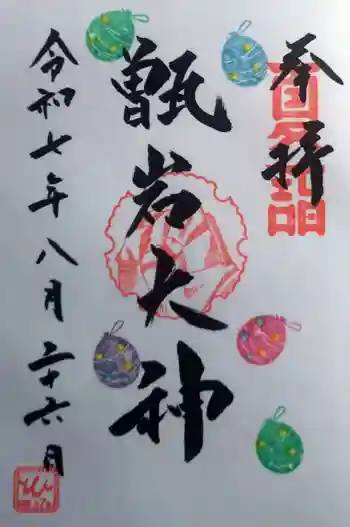 奉拝
甑岩大神
令和七年八月二十六日